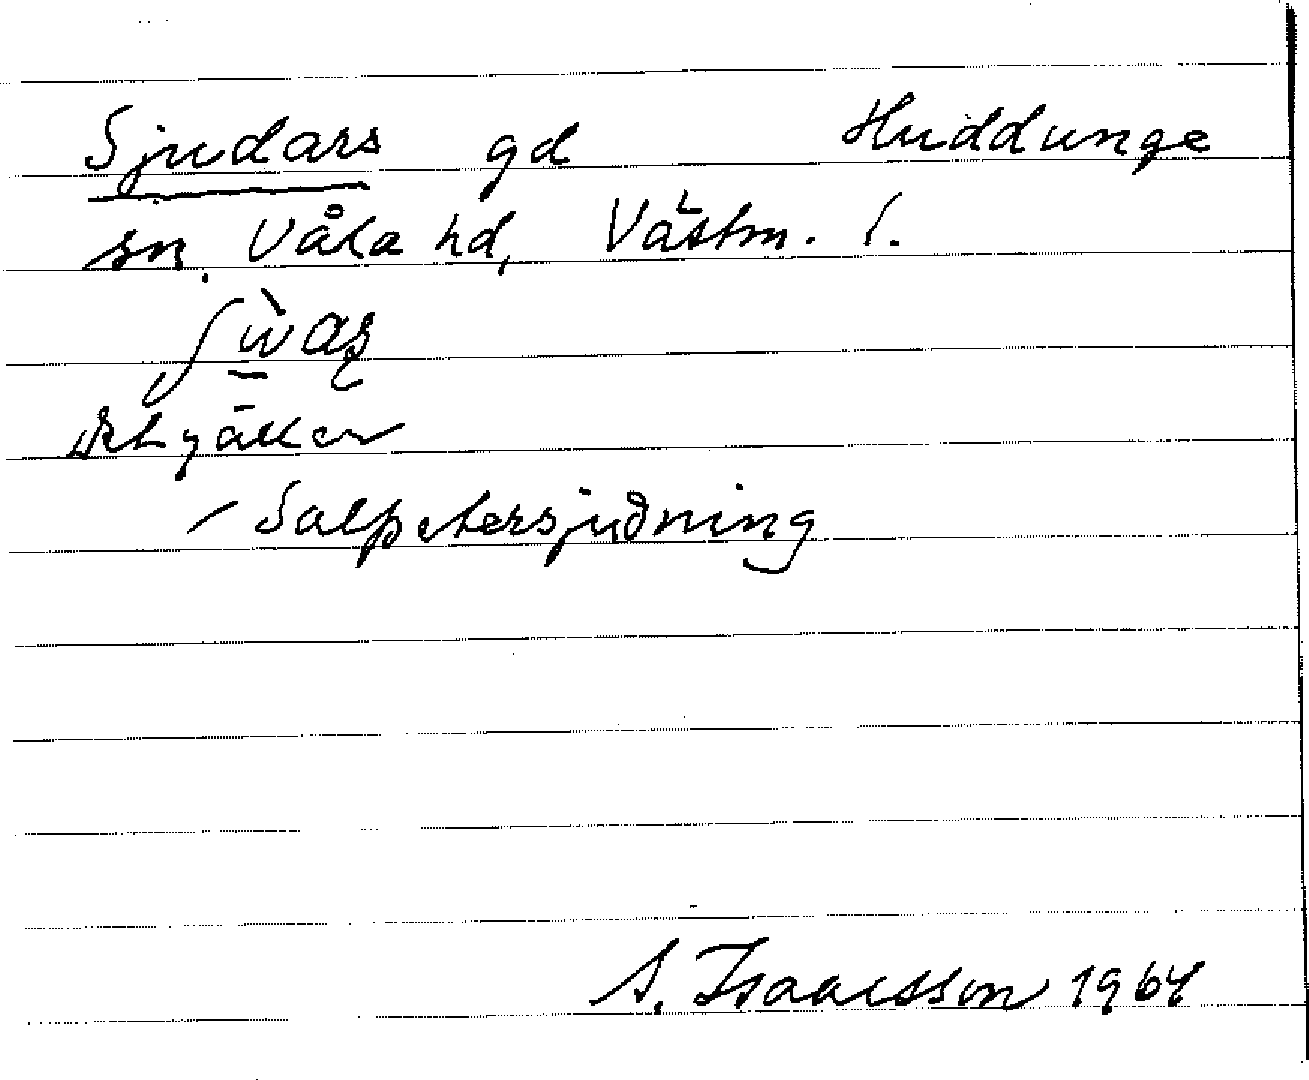 Sjudars gd Huddunge
sn. Våla hd, Västm. l.
Salpetersjudning
S. Isacsson 1964